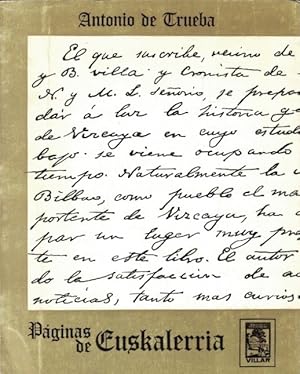 Antonio de Trueba
El que suscribe, vecino de
y B. villa y Cronista de
N. y M. L. Señorio, se prepa
dár á luz la historia g
de Vizcaya en cuyo estud
bajo se viene ocupando
tiempo. Naturalmente la v
Bilbao, como pueblo el ma
portente de Vizcaya, ha
par un lugar muy pre
te en este libro. El autor
do la satisfaccion de a
noticias, tanto mas curios
Páginas
de Euskalerria
VILLAR